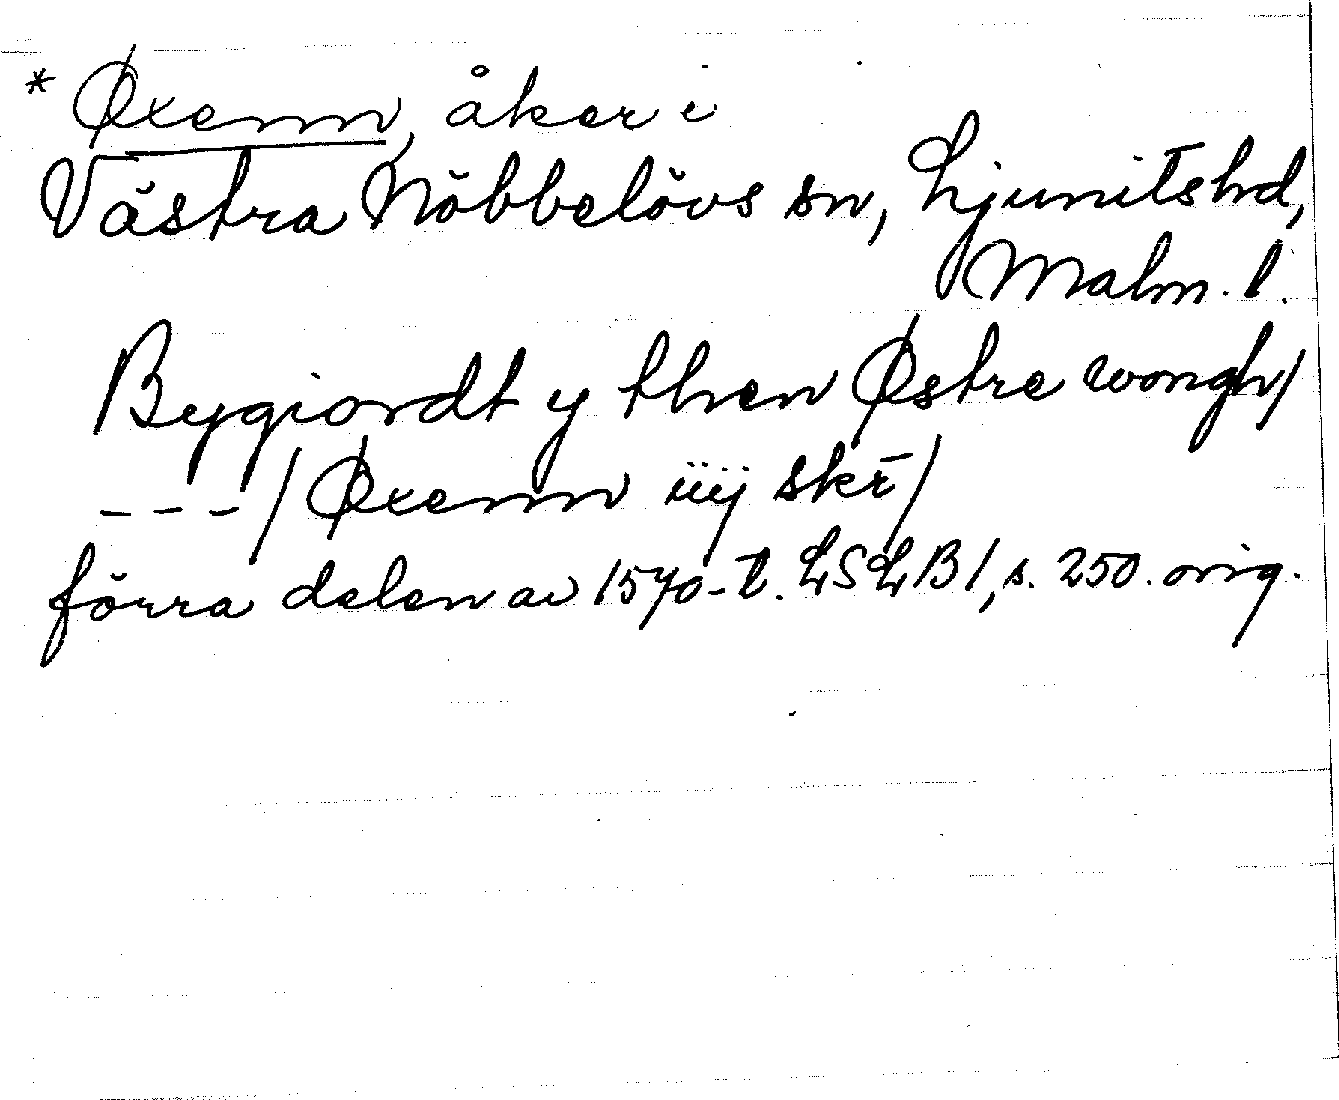 * Øxenn, åker i
Västra Nöbbelövs sn, Ljunits hd,
Malm. l.
Bygiordt y then Østre wongh/
- - - / Øxenn iiij skr̄/
förra delen av 1570-t. LSLB1, s. 250. orig.